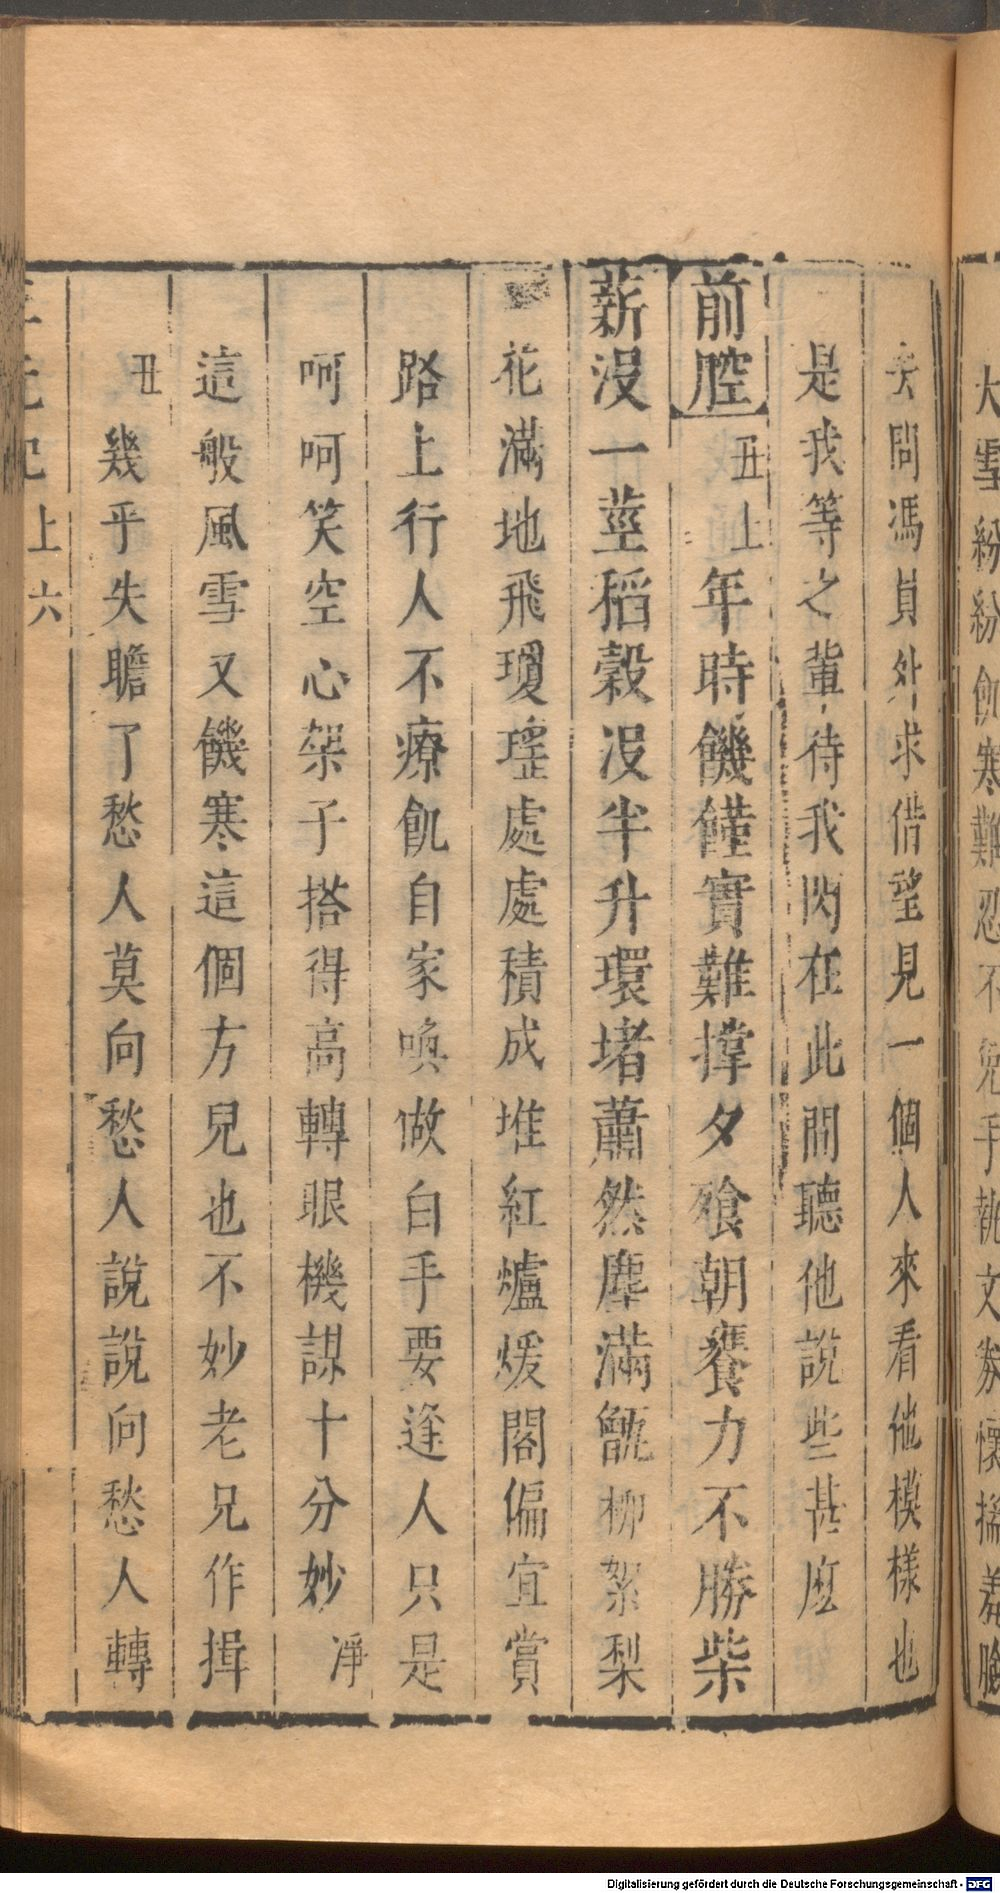 大雪紛紛飢寒難忍不免手執文券懷揣羞臉
去問馮員外求借望見一個人來看他模樣也
是我等之輩待我閃在此間聽他說些甚麽
前腔 丑上 年時饑饉實難撑夕飱朝饔力不勝柴
薪没一莖稻穀没半升環堵蕭然塵滿甑柳絮梨
花滿地飛瓊瑤處處積成堆紅爐煖閣偏宜賞
路上行人不療飢自家喚做白手要逢人只是
呵呵笑空心架子搭得高轉眼機謀十分妙 淨
這般風雪又饑寒這個方兒也不妙老兄作揖
丑 幾乎失瞻了愁人莫向愁人說說向愁人轉
三元記 上 六
Digitalisierung gefördert durch die Deutsche Forschungsgemeinschaft - DFG